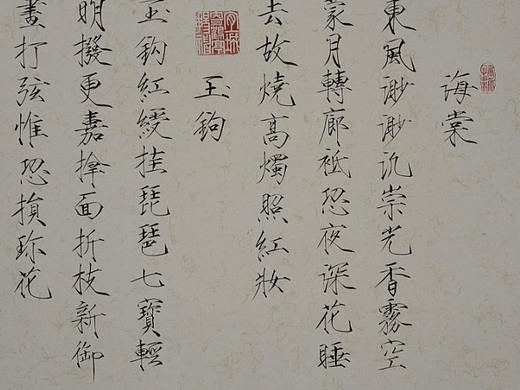 海棠
東風渺渺汎崇光香霧空
蒙月轉廊祗恐夜深花睡
去故燒高燭照紅妝
玉鉤
玉鉤紅綬挂琵琶七寶輕
明撥更嘉捍面折枝新御
畫打弦惟恐損珎花